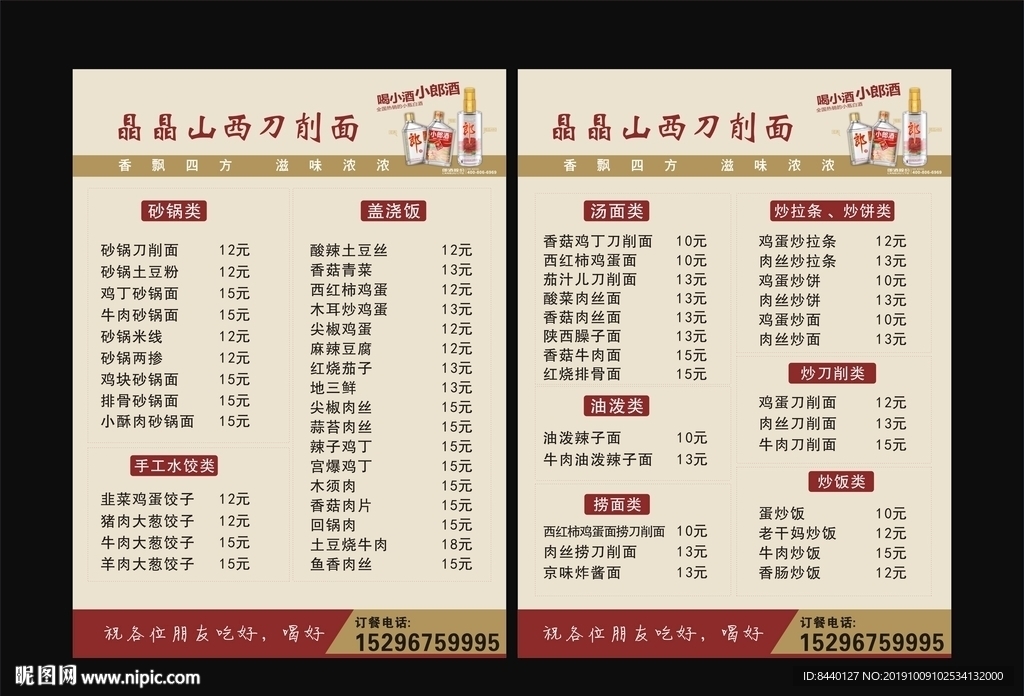 喝小酒小郎酒
全国热销的小瓶白酒
晶晶山西刀削面
香飘四方 滋味浓浓
砂锅类
砂锅刀削面 12元
砂锅土豆粉 12元
鸡丁砂锅面 15元
牛肉砂锅面 15元
砂锅米线 12元
砂锅两掺 12元
鸡块砂锅面 15元
排骨砂锅面 15元
小酥肉砂锅面 15元
手工水饺类
韭菜鸡蛋饺子 12元
猪肉大葱饺子 12元
牛肉大葱饺子 15元
羊肉大葱饺子 15元
盖浇饭
酸辣土豆丝 12元
香菇青菜 13元
西红柿鸡蛋 12元
木耳炒鸡蛋 13元
尖椒鸡蛋 12元
麻辣豆腐 12元
红烧茄子 13元
地三鲜 13元
尖椒肉丝 15元
蒜苔肉丝 15元
辣子鸡丁 15元
宫爆鸡丁 15元
木须肉 15元
香菇肉片 15元
回锅肉 15元
土豆烧牛肉 18元
鱼香肉丝 15元
祝各位朋友吃好，喝好
订餐电话:
15296759995
喝小酒小郎酒
全国热销的小瓶白酒
晶晶山西刀削面
香飘四方 滋味浓浓
汤面类
香菇鸡丁刀削面 10元
西红柿鸡蛋面 10元
茄汁儿刀削面 13元
酸菜肉丝面 13元
香菇肉丝面 13元
陕西臊子面 13元
香菇牛肉面 15元
红烧排骨面 15元
油泼类
油泼辣子面 10元
牛肉油泼辣子面 13元
捞面类
西红柿鸡蛋面捞刀削面 10元
肉丝捞刀削面 13元
京味炸酱面 13元
炒拉条、炒饼类
鸡蛋炒拉条 12元
肉丝炒拉条 13元
鸡蛋炒饼 10元
肉丝炒饼 13元
鸡蛋炒面 10元
肉丝炒面 13元
炒刀削类
鸡蛋刀削面 12元
肉丝刀削面 13元
牛肉刀削面 15元
炒饭类
蛋炒饭 10元
老干妈炒饭 12元
牛肉炒饭 15元
香肠炒饭 12元
祝各位朋友吃好，喝好
订餐电话:
15296759995
昵图网 www.nipic.com
ID:8440127 NO:20191009102534132000